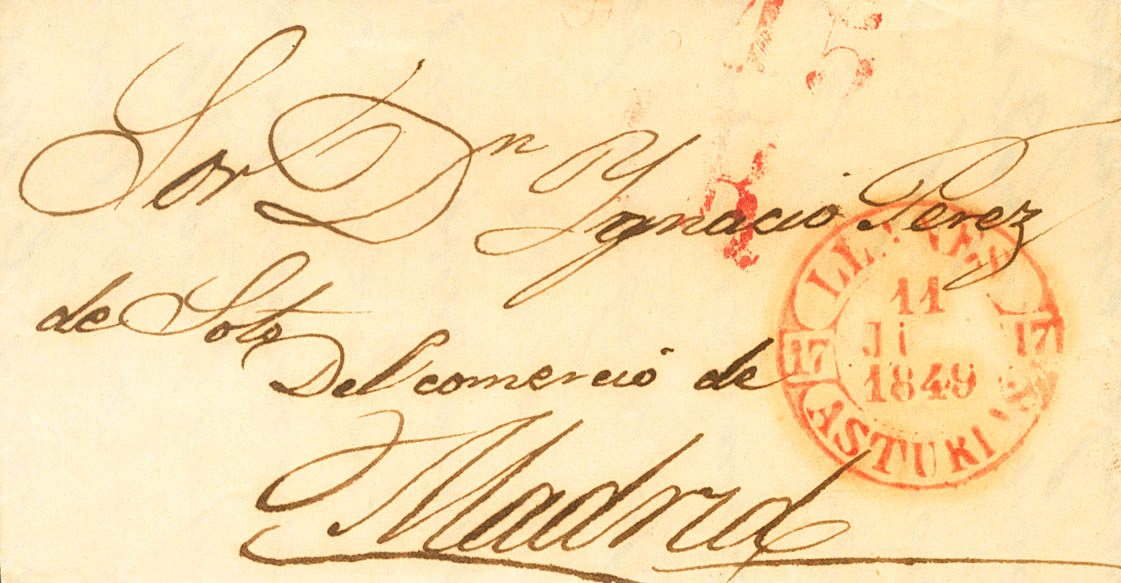 15
Sor Dn Ygnacio Perez
de Soto
Del comercio de
Madrid
LLANES
11
1849
17 17
ASTURIAS